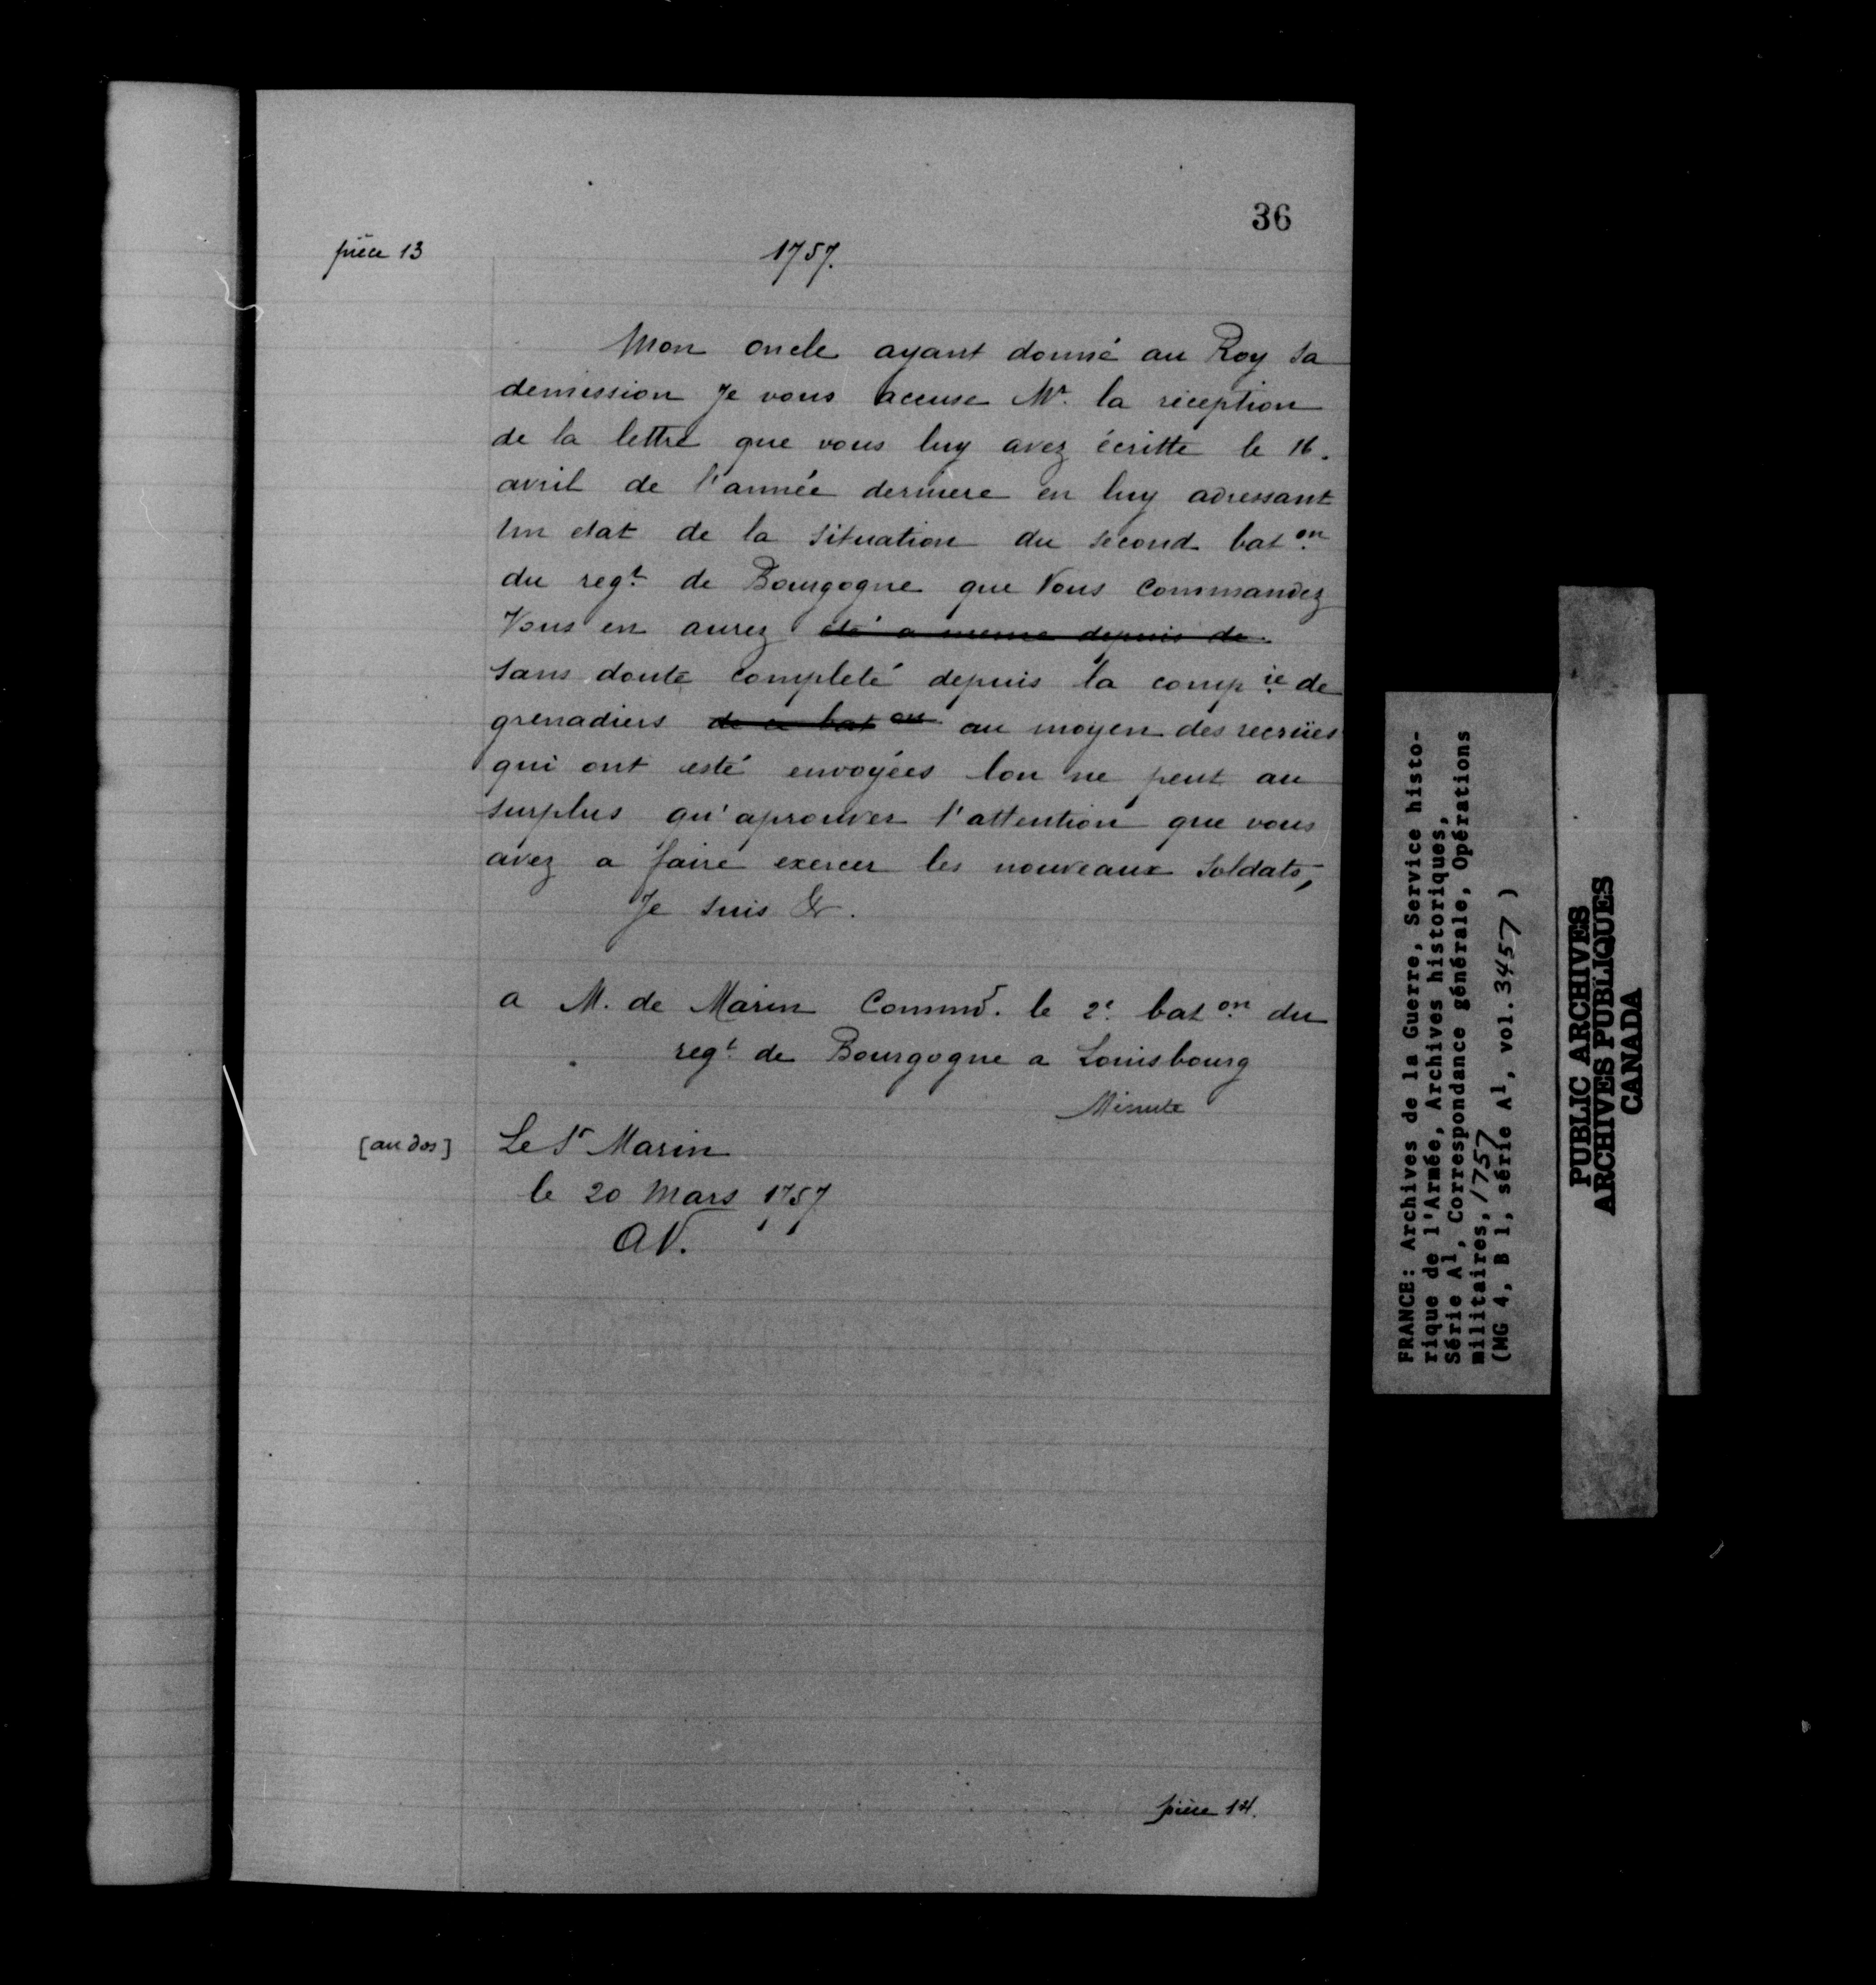 36
pièce 13
1757.
Mon oncle ayant donné au Roy sa
demission Je vous accuse Mr. la réception
de la lettre que vous luy avez écritte le 16.
avril de l'année derniere en luy adressant
Un etat de la Situation du second bat.on
du reg.t de Bourgogne que Vous Commandez
Vous en aurez été a meme depuis de
sans doute completé depuis la comp.ie de
grenadiers de ce bat.on au moyen des recrües
qui ont esté envoyées l'on ne peut au
surplus qu'aprouver l'attention que vous
avez a faire exercer les nouveaux Soldats,
Je suis &.
a M. de Marin Commd.t le 2.e bat.on du
reg.t de Bourgogne a Louisbourg
Minute
[au dos] Le Sr Marin
le 20 Mars 1757
AV.
pièce 14.
FRANCE: Archives de la Guerre, Service histo-
rique de l'Armée, Archives historiques,
Série A1, Correspondance générale, Opérations
militaires, 1757
(MG 4, B 1, série A1, vol. 3457 )
PUBLIC ARCHIVES
ARCHIVES PUBLIQUES
CANADA